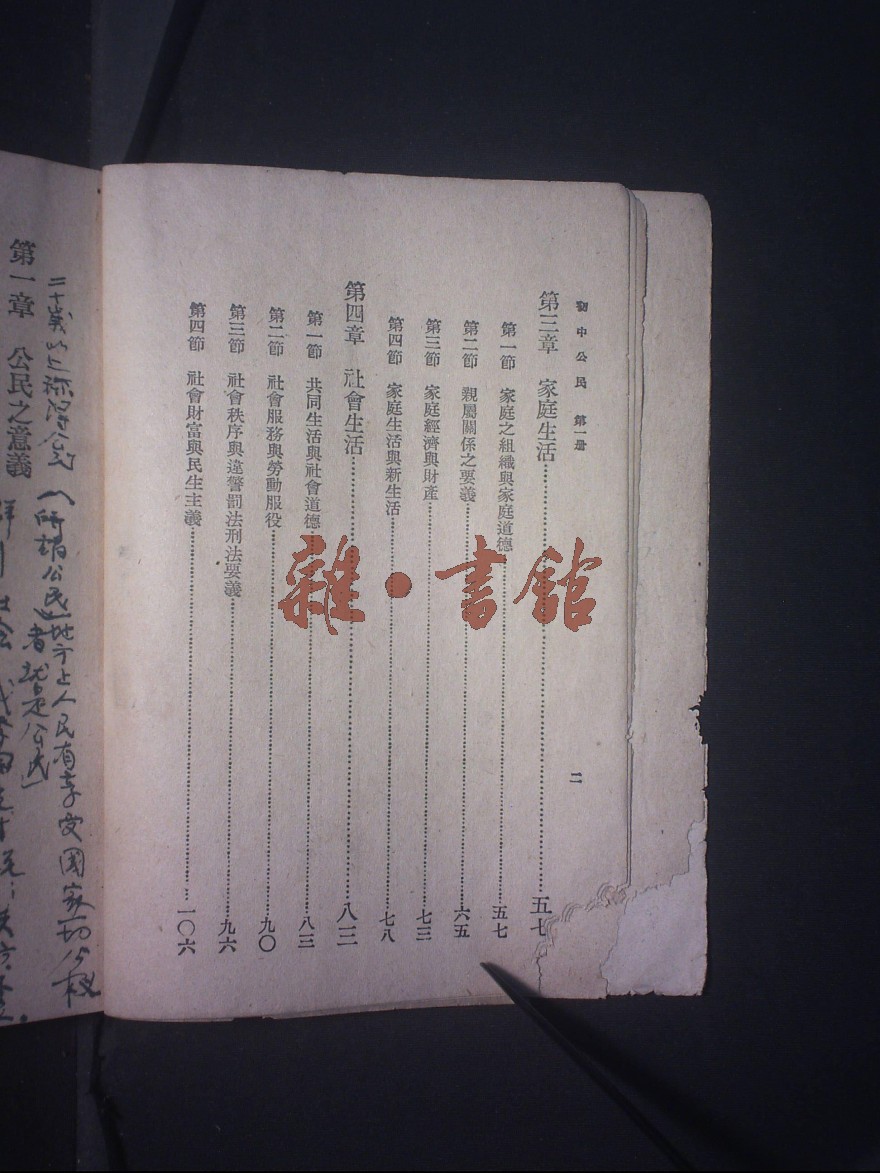 初中公民 第一册
二
第三章 家庭生活……五七
第一節 家庭之組織與家庭道德……五七
第二節 親屬關係之要義……六五
第三節 家庭經濟與財產……七三
第四節 家庭生活與新生活……七八
第四章 社會生活……八三
第一節 共同生活與社會道德……八三
第二節 社會服務與勞動服役……九〇
第三節 社會秩序與違警罰法刑法要義……九六
第四節 社會財富與民生主義……一〇六
雜·書館
二十歲以上称得公民
(所謂公民)地方上人民有享受國家一切公权
者就是公民」
第一章 公民之意義